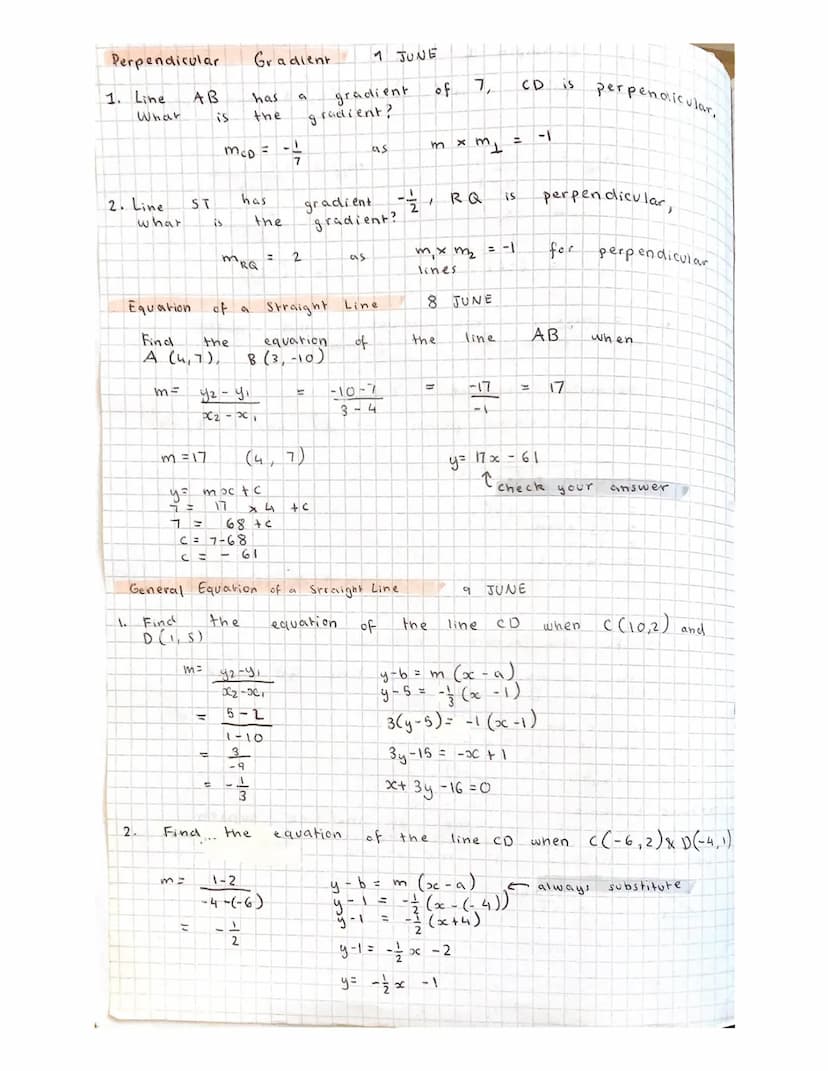 Perpendicular Gradient 7 JUNE
1. Line AB has a gradient of 7, CD is perpendicular,
What is the gradient?
m_CD = -1/7 as m × m⊥ = -1
2. Line ST has gradient -1/2, RQ is perpendicular,
what is the gradient?
m_RQ = 2 as m₁ × m₂ = -1 for perpendicular
lines
Equation of a Straight Line 8 JUNE
Find the equation of the line AB when
A (4,7), B (3,-10)
m = (y₂ - y₁)/(x₂ - x₁) = (-10-7)/(3-4) = -17/-1 = 17
m = 17 (4, 7) y = 17x - 61
↑ check your answer
y = mx + c
7 = 17 × 4 + c
7 = 68 + c
c = 7-68
c = - 61
General Equation of a Straight Line 9 JUNE
1. Find the equation of the line CD when C(10,2) and
D(1,5)
m = (y₂-y₁)/(x₂-x₁)
= (5-2)/(1-10)
= 3/-9
= -1/3
y-b = m (x-a)
y-5 = -1/3 (x -1)
3(y-5) = -1(x-1)
3y-15 = -x + 1
x + 3y -16 = 0
2. Find... the equation of the line CD when C(-6,2) & D(-4,1)
m = (1-2)/(-4-(-6))
= -1/2
y-b = m (x-a) ← always substitute
y-1 = -1/2 (x-(-4))
y-1 = -1/2 (x+4)
y-1 = -1/2 x -2
y = -1/2 x -1